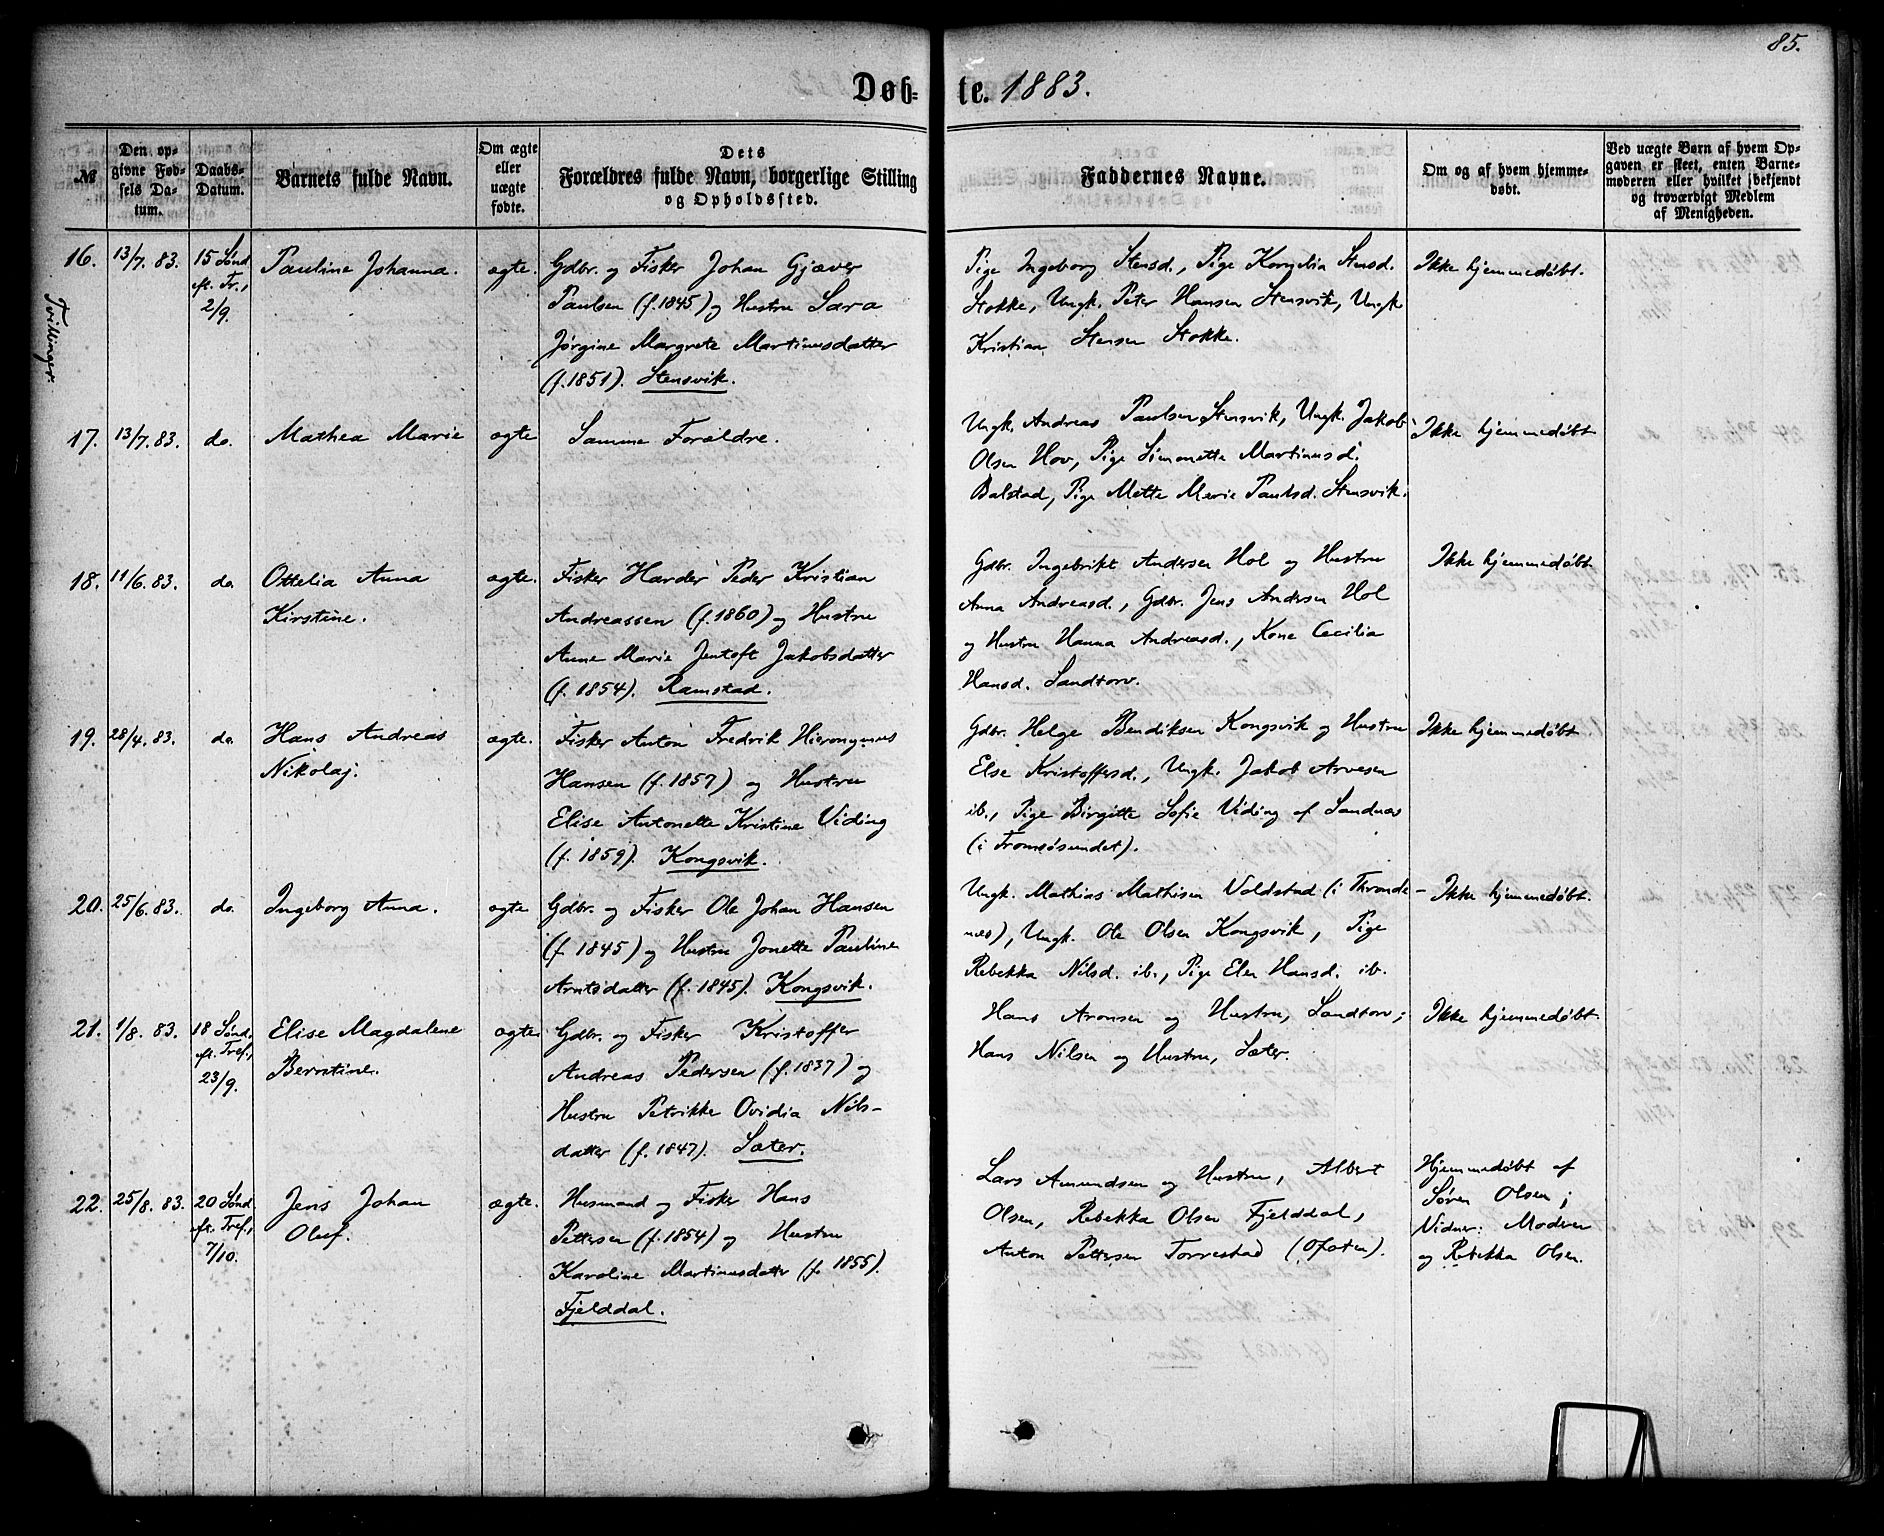 85.
Døb- te. 1883.
№
Den op-
givne Fød-
sels Da-
tum.
Daabs-
Datum.
Barnets fulde Navn.
Om ægte
eller
uægte
fødte.
Dets
Forældres fulde Navn, borgerlige Stilling
og Opholdssted.
Faddernes Navne.
Om og af hvem hjemme-
døbt.
Ved uægte Børn af hvem Op-
gaven er skeet, enten Barne-
moderen eller hvilket bekjendt
og troværdigt Medlem
af Menigheden.
Tvillinger.
16.
13/7. 83.
15 Sønd
eft. Tr.,
2/9.
Pauline Johanna.
ægte.
Gdbr. og Fisker Johan Gjæver
Paulsen (f. 1845) og Hustru Sara
Jørgine Margrete Martinusdatter
(f. 1851). Stensvik.
Pige Ingeborg Stensd., Pige Kornelia Stensd.
Stokke, Ungk. Peter Hansen Stensvik, Ungk
Kristian Stensen Stokke.
Ikke hjemmedøbt.
17.
13/7. 83.
do.
Mathea Marie
ægte
Samme Forældre.
Ungk. Andreas Paulsen Stensvik, Ungk. Jakob
Olsen Hov, Pige Simonette Martinusd.
Balstad, Pige Mette Marie Paulsd. Stensvik.
Ikke hjemmedøbt
18.
11/6. 83.
do.
Ottelia Anna
Kirstine.
ægte.
Fisker Harder Peder Kristian
Andreassen (f. 1860) og Hustru
Anne Marie Jentoft Jakobsdatter
(f. 1854). Ramstad.
Gdbr. Ingebrikt Andersen Hol og Hustru
Anna Andreasd., Gdbr. Jens Andersen Hol
og Hustru Hanna Andreasd., Kone Cecilia
Hansd. Sandtorv.
Ikke hjemmedøbt
19.
28/4. 83.
do.
Hans Andreas
Nikolaj.
ægte.
Fisker Anton Fredrik Hieronymus
Hansen (f. 1857) og Hustru
Elise Antonette Kristine Viding
(f. 1859). Kongsvik.
Gdbr. Helge Bendiksen Kongsvik og Hustru
Else Kristoffersd., Ungk. Jakob Arvesen
ib., Pige Birgitte Sofie Viding af Sandnæs
(i Tromsøsundet).
Ikke hjemmedøbt
20.
25/6. 83.
do.
Ingeborg Anna.
ægte
Gdbr. og Fisker Ole Johan Hansen
(f. 1845) og Hustru Jonette Pauline
Arntsdatter (f. 1845). Kongsvik.
Ungk. Mathias Mathisen Voldstad (i Thronde-
næs), Ungk. Ole Olsen Kongsvik, Pige
Rebekka Nilsd. ib., Pige Elen Hansd. ib.
Ikke hjemmedøbt.
21.
1/8. 83.
18 Sønd.
eft. Tref.,
23/9.
Elise Magdalene
Berntine.
ægte.
Gdbr. og Fisker Kristoffer
Andreas Pedersen (f. 1837) og
Hustru Petrikke Ovidia Nils-
datter (f. 1847). Sæter.
Hans Aronsen og Hustru, Sandtorv;
Hans Nilsen og Hustru, Sæter.
Ikke hjemmedøbt.
22.
25/8. 83.
20 Sønd
eft. Tref.,
7/10.
Jens Johan
Oluf.
ægte.
Husmand og Fisker Hans
Pettersen (f. 1854) og Hustru
Karoline Martinusdatter (f. 1855).
Fjelddal.
Lars Amundsen og Hustru, Albert
Olsen, Rebekka Olsen Fjelddal,
Anton Pettersen Torrestad (Ofoten).
Hjemmedøbt af
Søren Olsen;
Vidner: Moderen
og Rebekka Olsen.